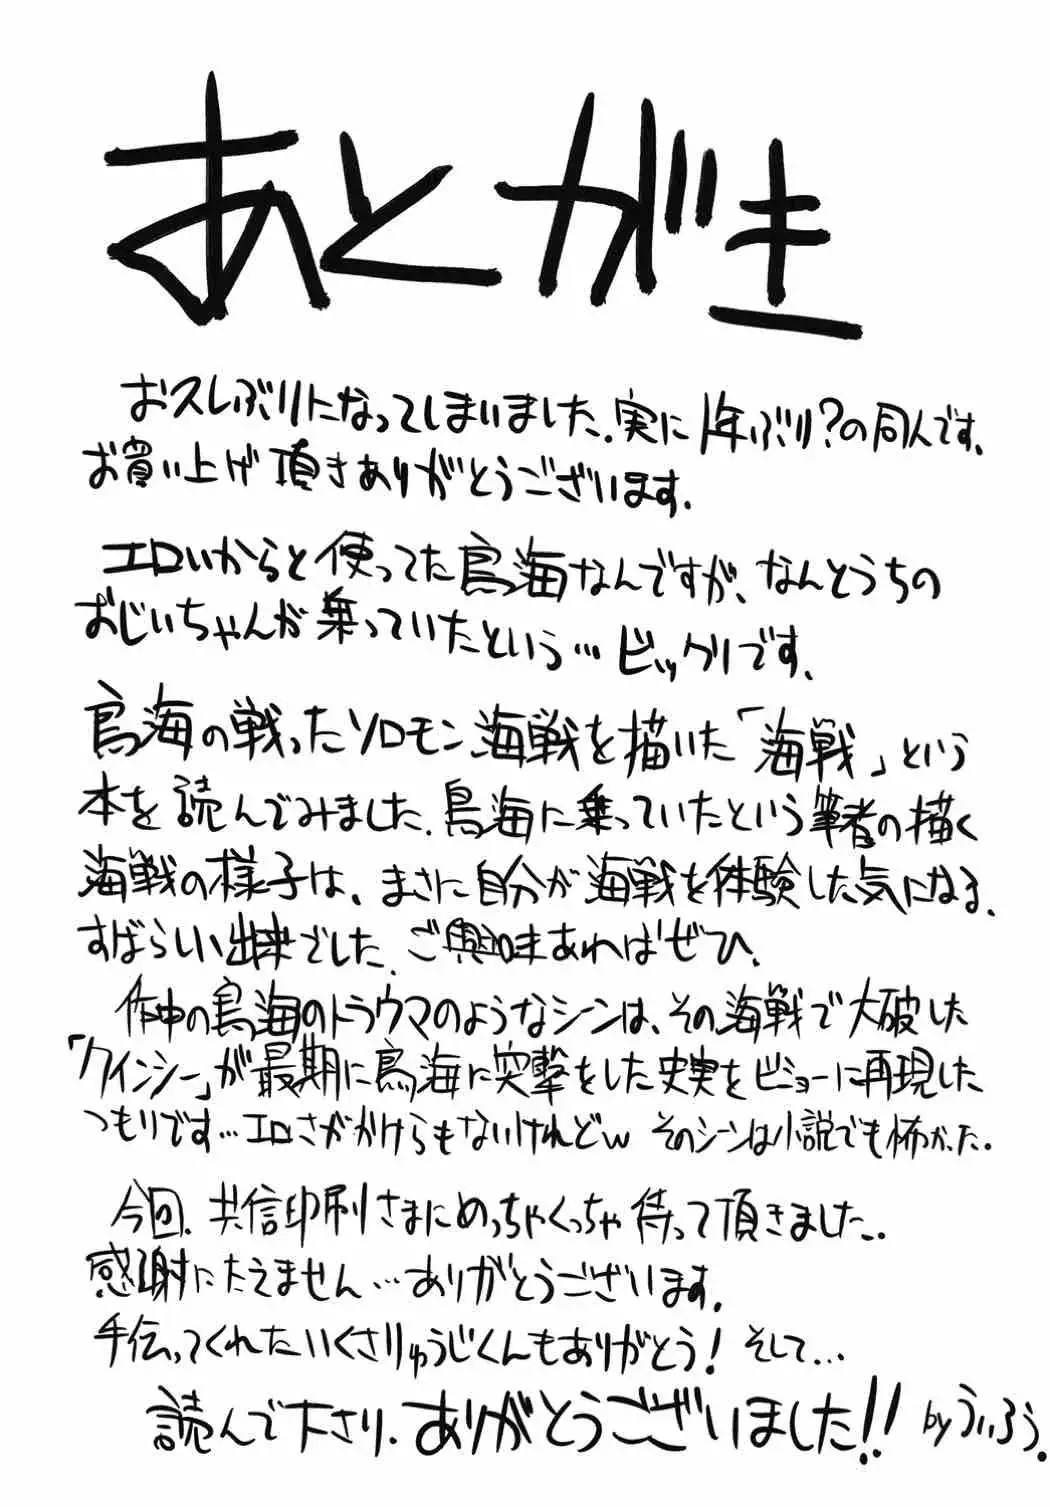 あとがき
お久しぶりになってしまいました.実に1年ぶり?の同人です.
お買い上げ頂きありがとうございます.
エロいからと使ってた鳥海なんですが、なんとうちの
おじいちゃんが乗っていたという…ビックリです.
鳥海の戦ったソロモン海戦を描いた「海戦」という
本を読んでみました.鳥海に乗っていたという筆者の描く
海戦の様子は、まさに自分が海戦を体験した気になる.
すばらしい出来でした.ご興味あればぜひ.
作中の鳥海のトラウマのようなシーンは、その海戦で大破した
「クインシー」が最期に鳥海に突撃をした史実をビミョーに再現した
つもりです…エロさがかけらもないけれどw そのシーンは小説でも怖かった.
今回.共信印刷さまにめっちゃくっちゃ待って頂きました..
感謝にたえません…ありがとうございます.
手伝ってくれたいくさりゅうじくんもありがとう!そして…
読んで下さり.ありがとうございました!! byういろう.